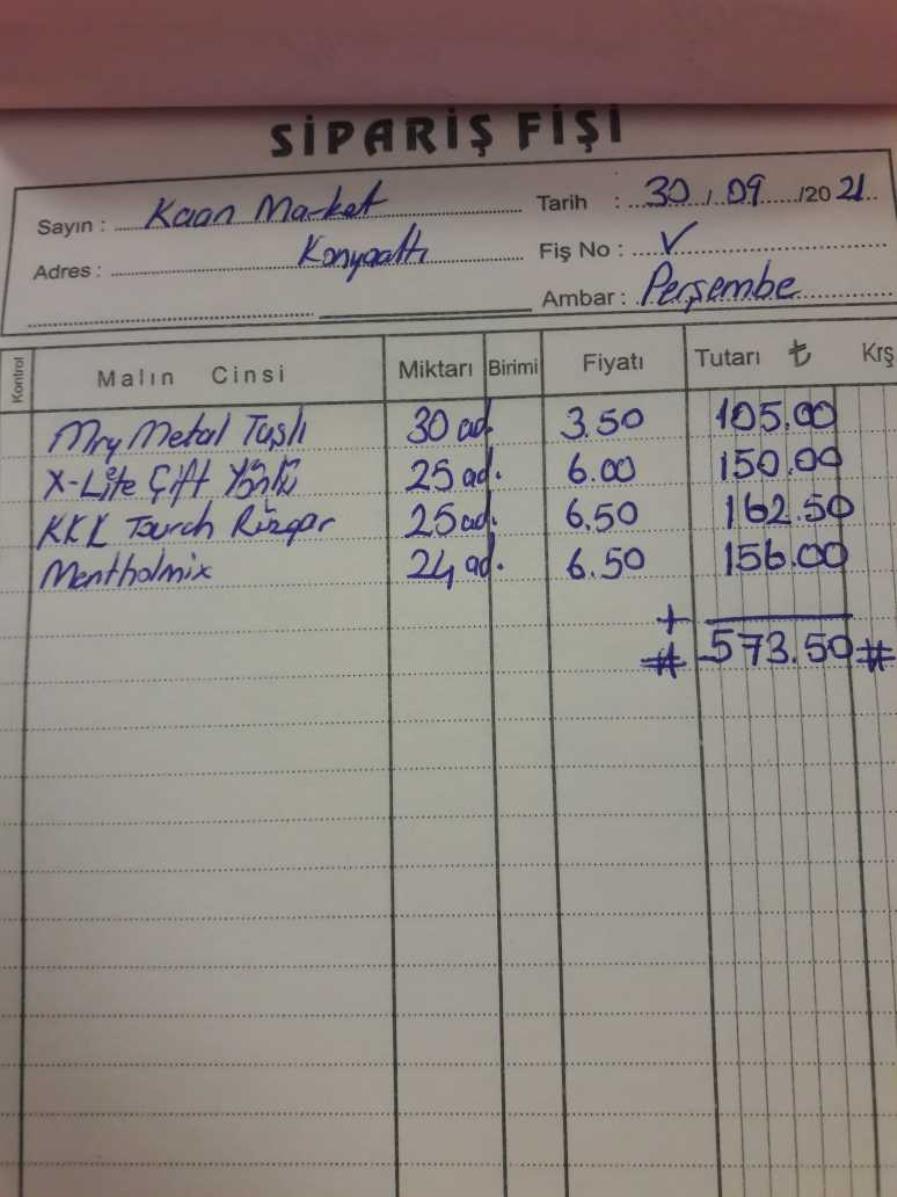 SİPARİŞ FİŞİ
Sayın : Kaan Market Tarih : 30 / 09 /20 21
Adres : Konyaaltı Fiş No : √
Ambar : Perşembe
Kontrol Malın Cinsi Miktarı Birimi Fiyatı Tutarı ₺ Krş
Mry Metal Taşlı 30 ad. 3.50 105.00
X-Lite Çift Yönlü 25 ad. 6.00 150.00
KKL Tourch Rüzgar 25 ad. 6.50 162.50
Mentholmix 24 ad. 6.50 156.00
+
# 573.50 #